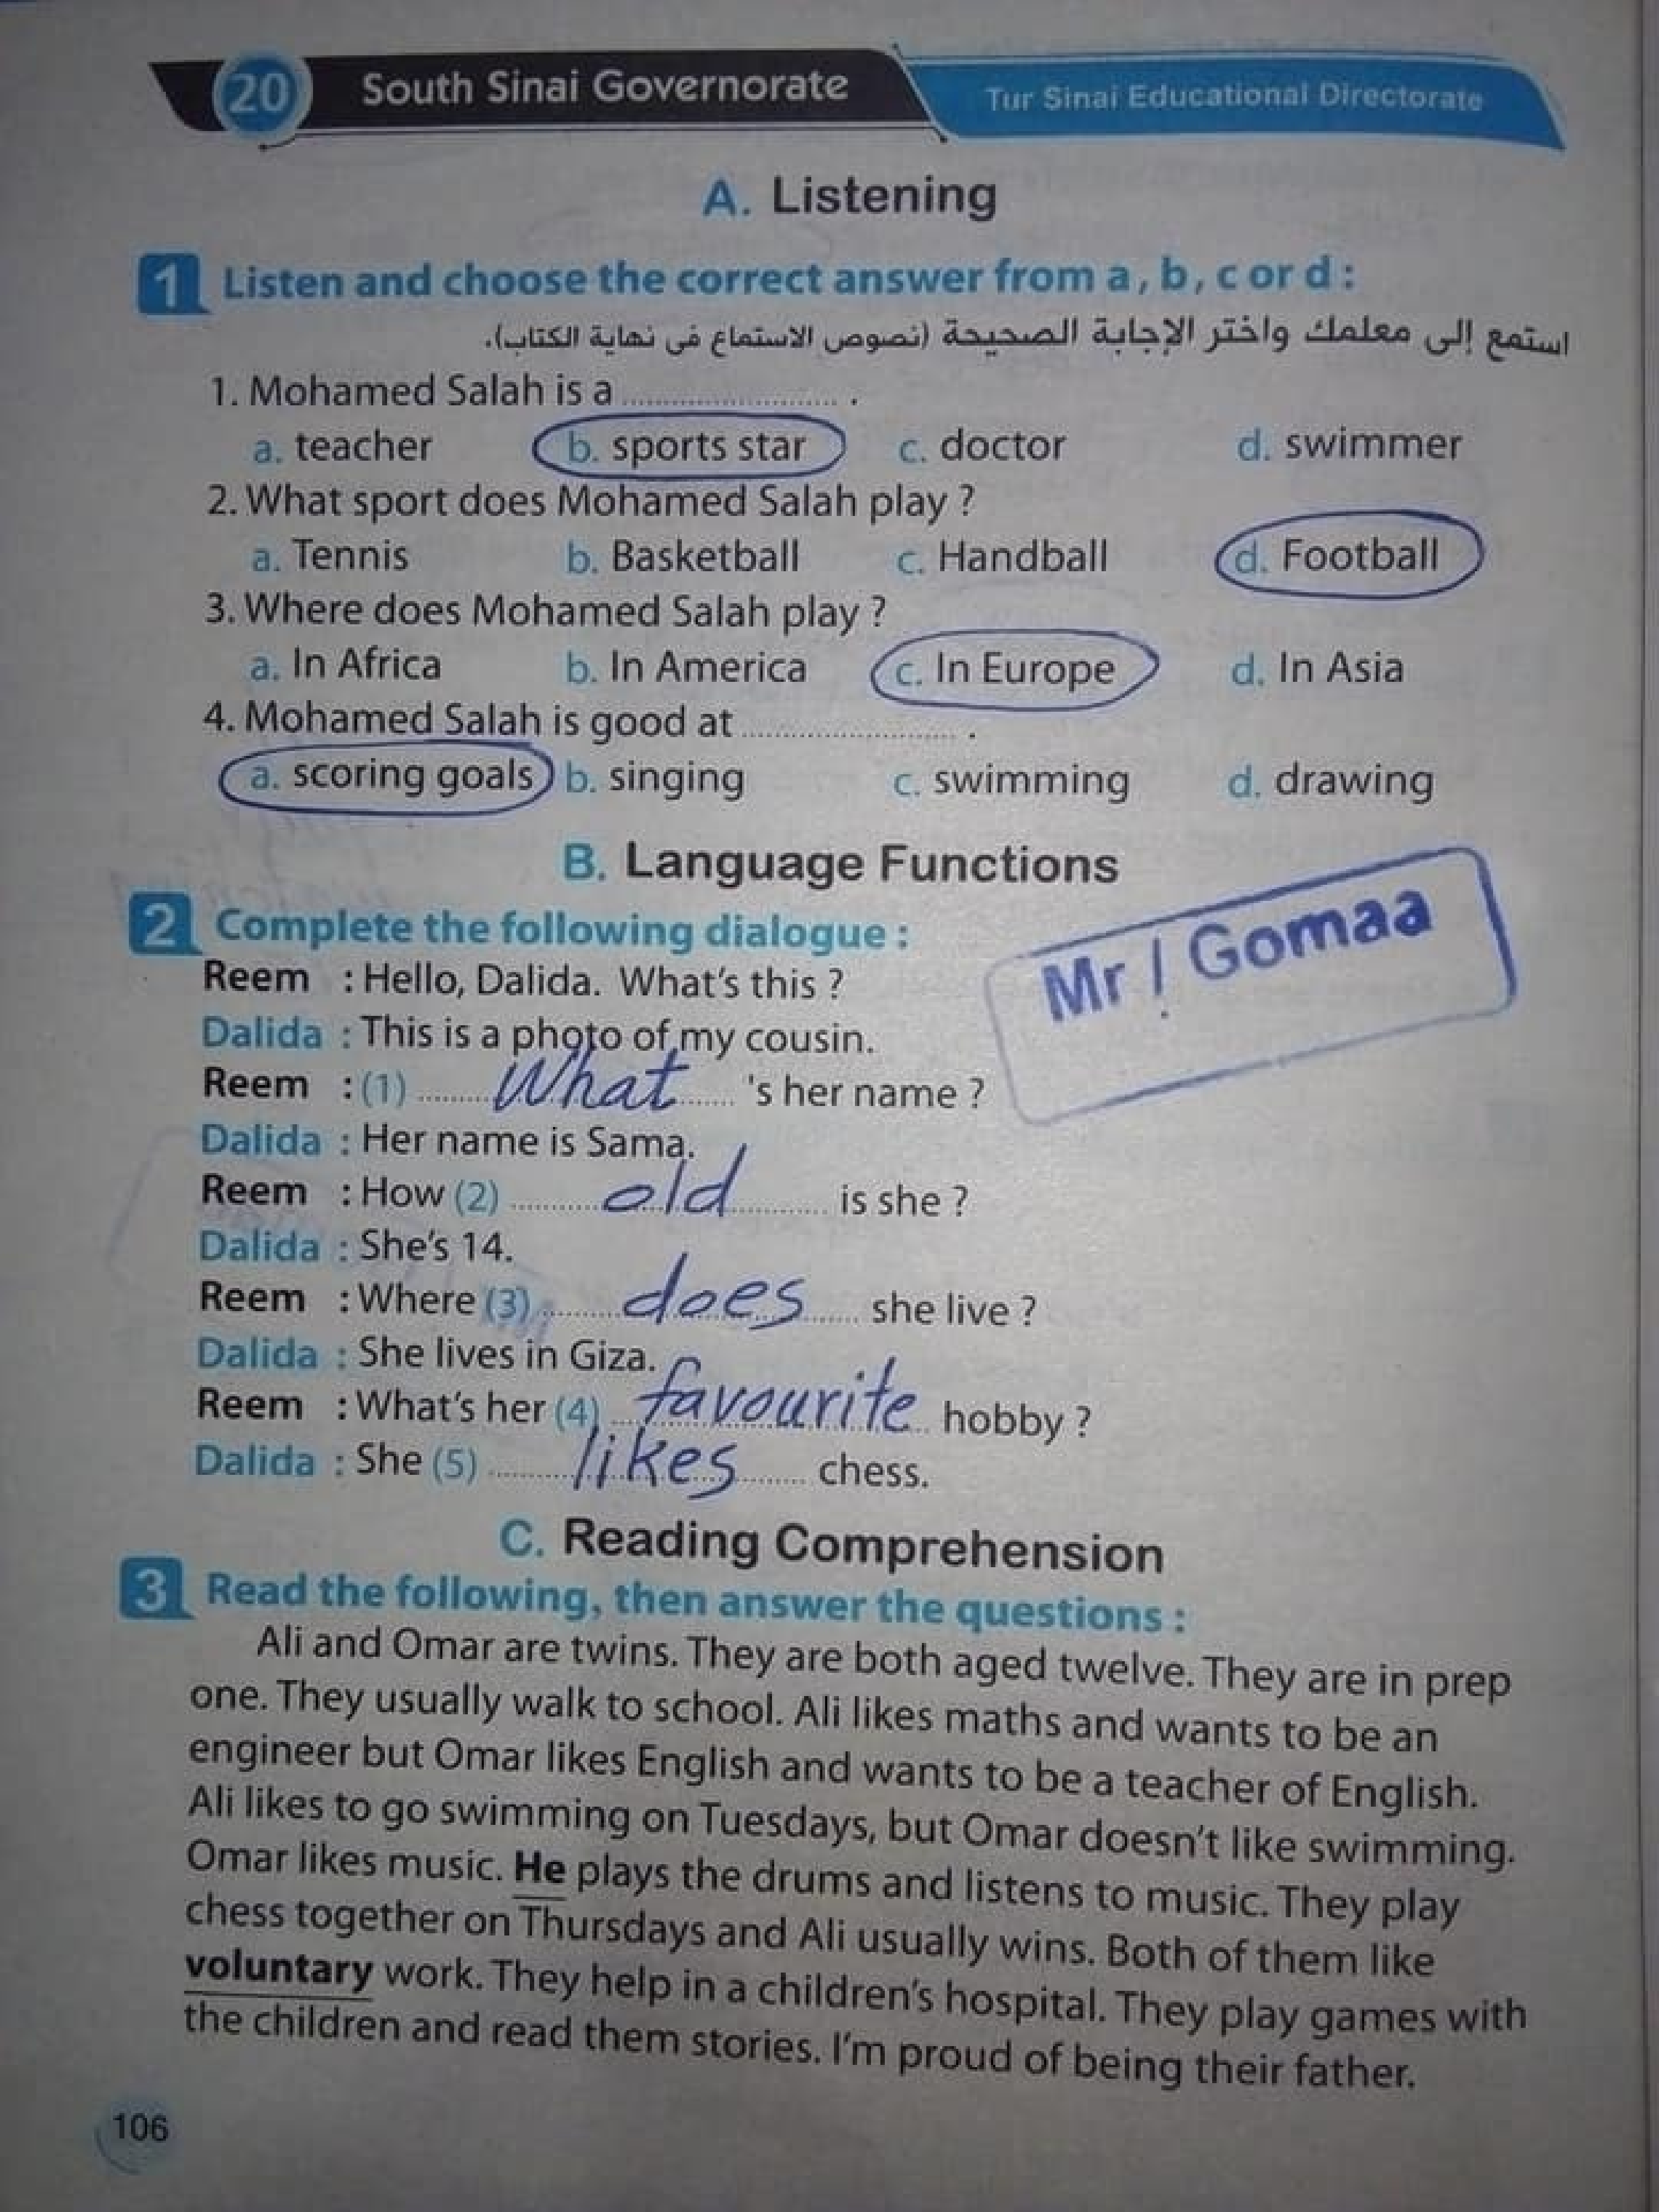 20 South Sinai Governorate Tur Sinai Educational Directorate
A. Listening
1 Listen and choose the correct answer from a, b, c or d :
استمع إلى معلمك واختر الإجابة الصحيحة (نصوص الاستماع فى نهاية الكتاب).
1. Mohamed Salah is a ........................ .
a. teacher b. sports star c. doctor d. swimmer
2. What sport does Mohamed Salah play ?
a. Tennis b. Basketball c. Handball d. Football
3. Where does Mohamed Salah play ?
a. In Africa b. In America c. In Europe d. In Asia
4. Mohamed Salah is good at ........................ .
a. scoring goals b. singing c. swimming d. drawing
B. Language Functions
2 Complete the following dialogue :
Mr / Gomaa
Reem : Hello, Dalida. What's this ?
Dalida : This is a photo of my cousin.
Reem : (1) ........ What ...... 's her name ?
Dalida : Her name is Sama.
Reem : How (2) .......... old .......... is she ?
Dalida : She's 14.
Reem : Where (3) ........ does ...... she live ?
Dalida : She lives in Giza.
Reem : What's her (4) ... favourite .. hobby ?
Dalida : She (5) ........ likes ........ chess.
C. Reading Comprehension
3 Read the following, then answer the questions :
Ali and Omar are twins. They are both aged twelve. They are in prep
one. They usually walk to school. Ali likes maths and wants to be an
engineer but Omar likes English and wants to be a teacher of English.
Ali likes to go swimming on Tuesdays, but Omar doesn't like swimming.
Omar likes music. He plays the drums and listens to music. They play
chess together on Thursdays and Ali usually wins. Both of them like
voluntary work. They help in a children's hospital. They play games with
the children and read them stories. I'm proud of being their father.
106